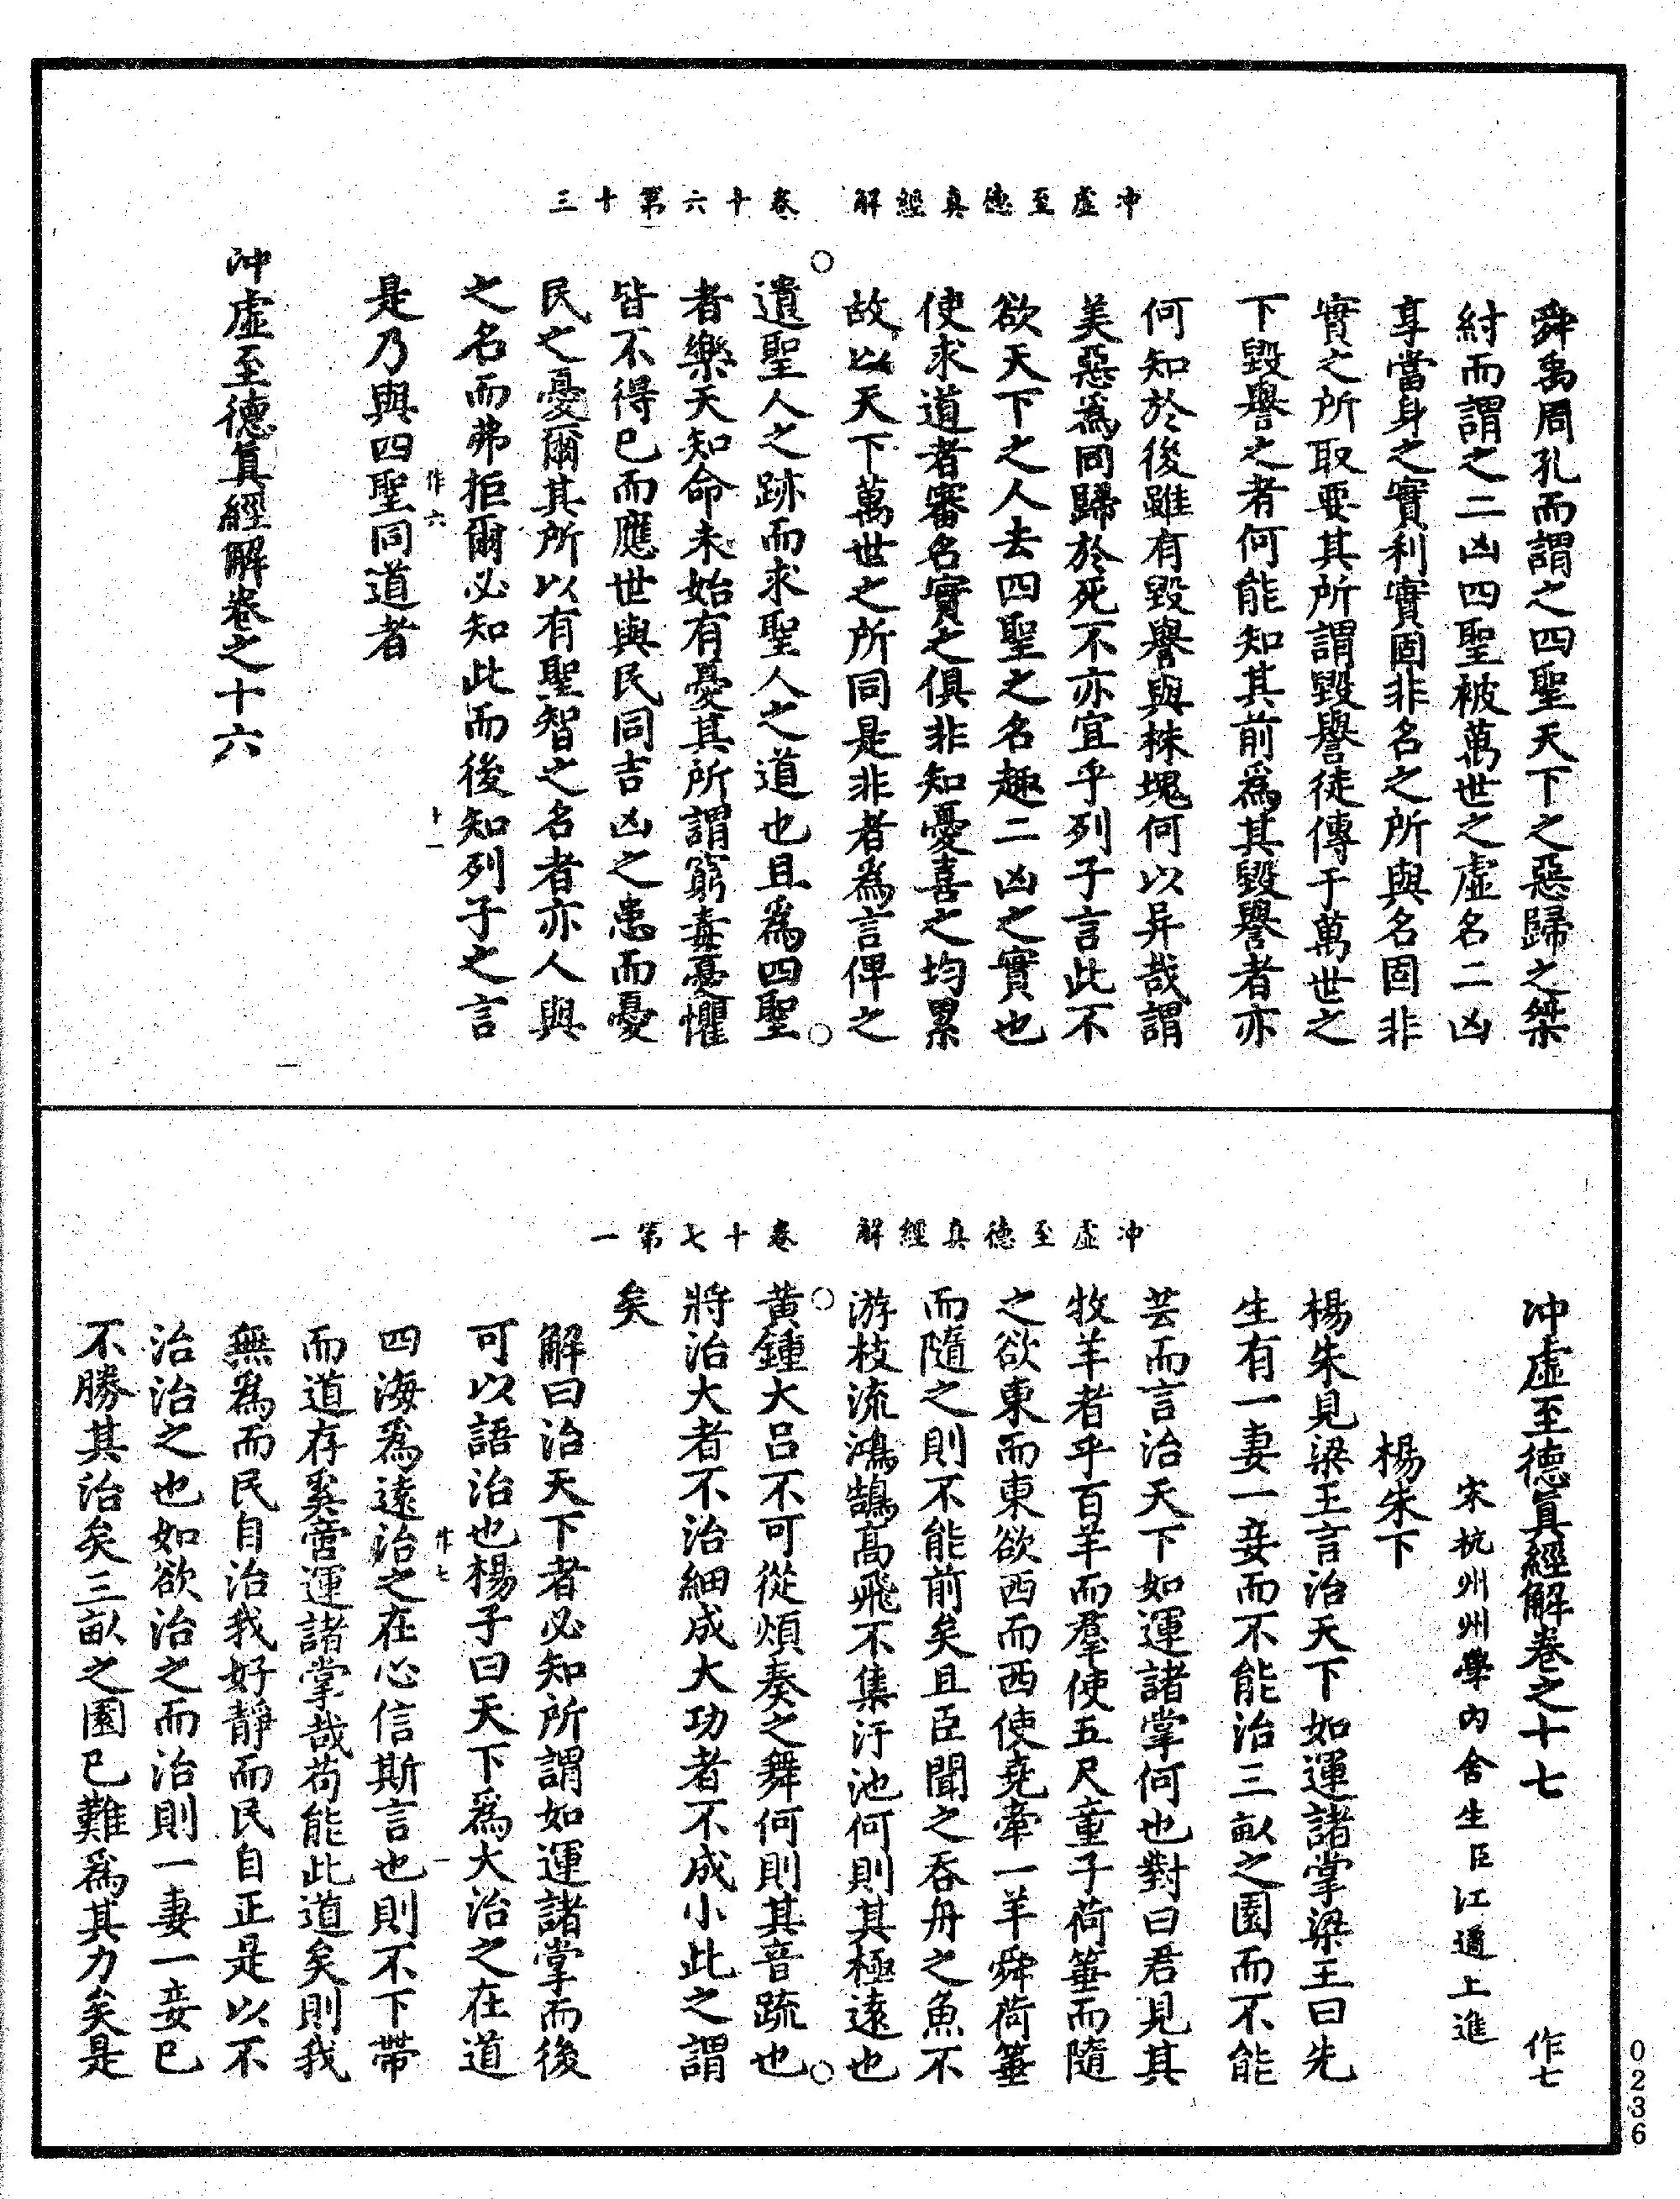 冲虛至德真經解　卷十六第十三
舜禹周孔而謂之四聖天下之惡歸之桀
紂而謂之二凶四聖被萬世之虛名二凶
享當身之實利實固非名之所與名固非
實之所取要其所謂毀譽徒傳于萬世之
下毀譽之者何能知其前為其毀譽者亦
何知於後雖有毀譽與株塊何以异哉謂
美惡為同歸於死不亦宜乎列子言此不
欲天下之人去四聖之名趣二凶之實也
使求道者審名實之俱非知憂喜之均累
故以天下萬世之所同是非者為言俾之
遺聖人之跡而求聖人之道也且為四聖
者樂天知命未始有憂其所謂窮毒憂懼
皆不得已而應世與民同吉凶之患而憂
民之憂爾其所以有聖智之名者亦人與
之名而弗拒爾必知此而後知列子之言
作六　十一
是乃與四聖同道者
冲虛至德真經解卷之十六
冲虛至德真經解　卷十七第一
冲虛至德真經解卷之十七　作七
宋杭州州學內舍生臣江遹上進
楊朱下
楊朱見梁王言治天下如運諸掌梁王曰先
生有一妻一妾而不能治三畝之園而不能
芸而言治天下如運諸掌何也對曰君見其
牧羊者乎百羊而羣使五尺童子荷箠而隨
之欲東而東欲西而西使堯牽一羊舜荷箠
而隨之則不能前矣且臣聞之吞舟之魚不
游枝流鴻鵠高飛不集汙池何則其極遠也
黃鍾大呂不可從煩奏之舞何則其音疏也
將治大者不治細成大功者不成小此之謂
矣
解曰治天下者必知所謂如運諸掌而後
可以語治也楊子曰天下為大治之在道
作七　一
四海為遠治之在心信斯言也則不下帶
而道存奚啻運諸掌哉苟能此道矣則我
無為而民自治我好靜而民自正是以不
治治之也如欲治之而治則一妻一妾已
不勝其治矣三畝之園已難為其力矣是
0236